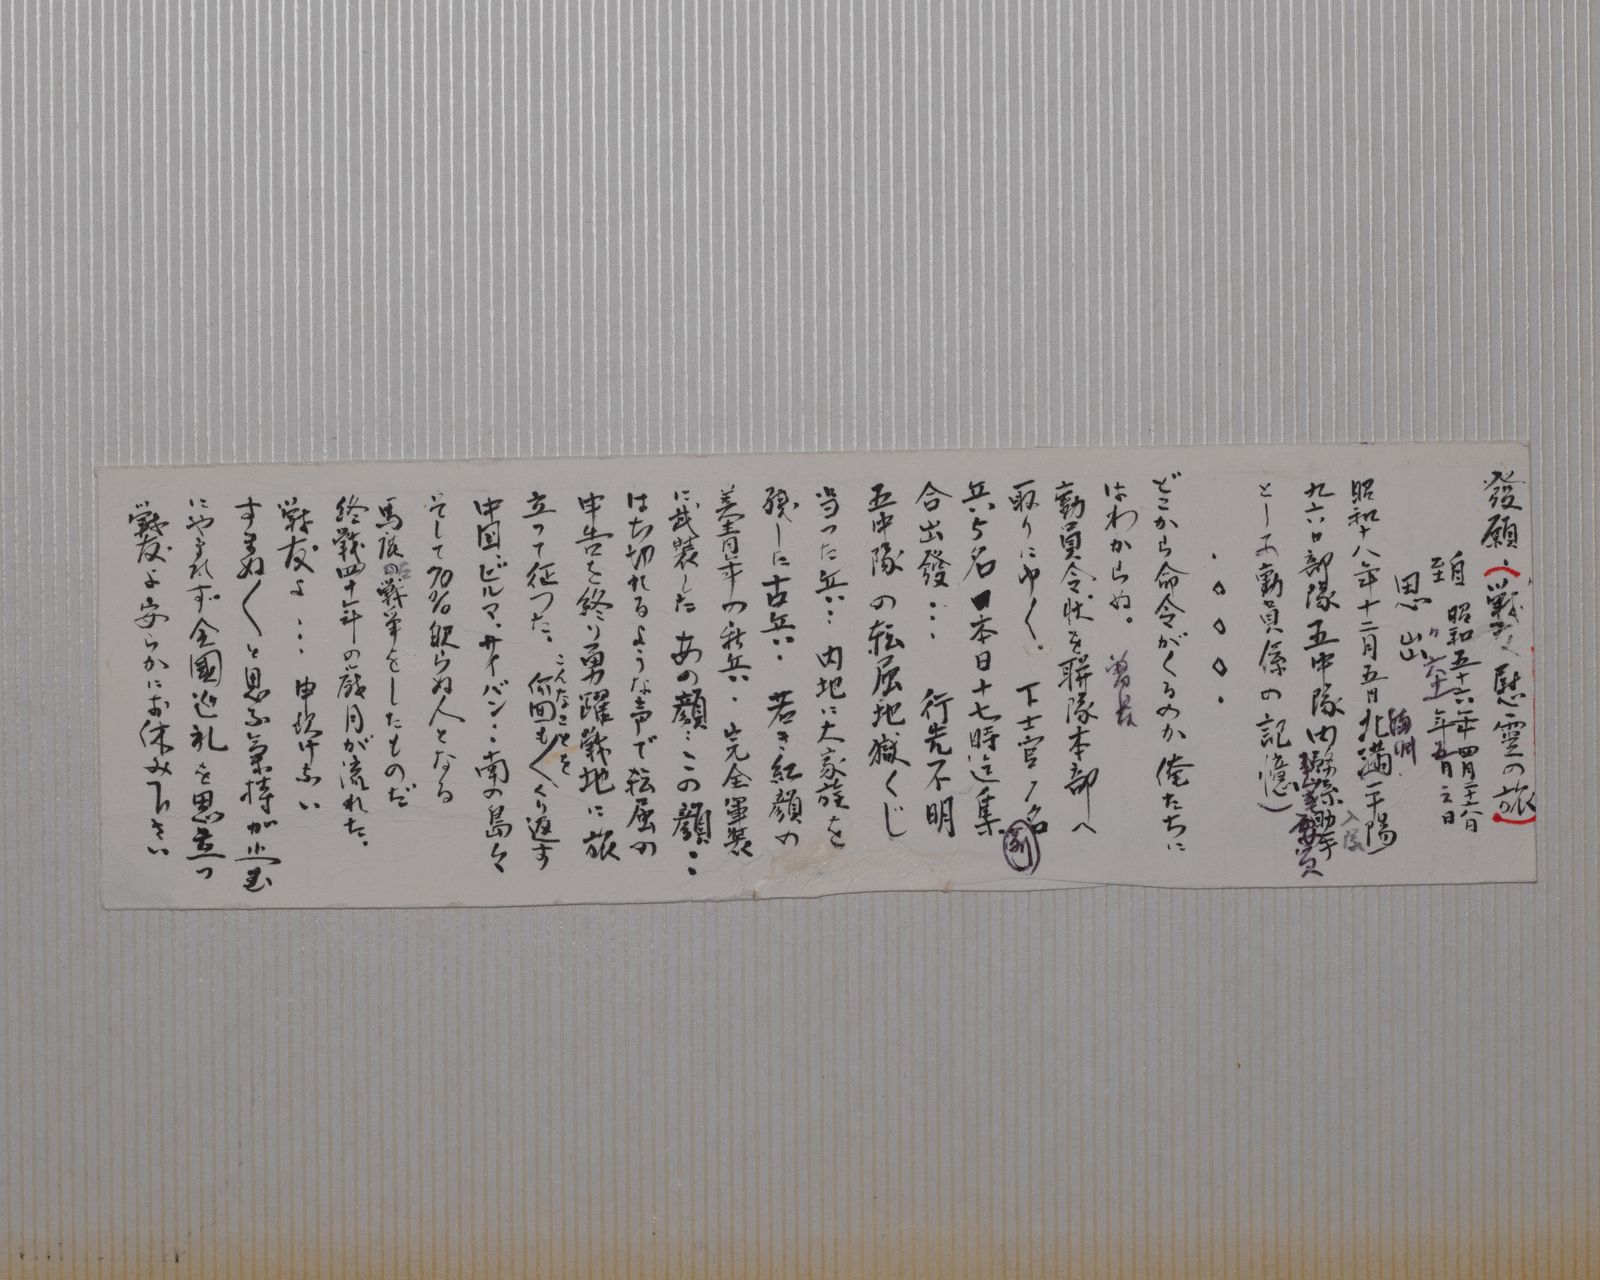 發願(戦友慰霊の旅)
自 昭和五十六年四月二十八日
至 〃 六十一年五月三日
思出
昭和十八年十二月五日北満 平陽 入隊
九六〇部隊五中隊 内務係助手
とし 動員係の記憶
どこから命令がくるのか俺たちに
はわからぬ。
動員令状を聯隊本部へ
取りに行く。 下士官1名
兵5名 本日十七時迄集
合出發… 行先不明
五中隊の転属地獄くじ
当った兵… 内地に大家族を
残しに古兵。若き紅顔の
美青年の新兵。完全軍装
に武装した あの顔…この顔…
はち切れるような声で転属の
申告を終り勇躍戦地に旅
立って征った。 こんなことを 何回もくり返す
中国、ビルマ、サイパン…南の島々
そして70%眠らぬ人となる
馬鹿の戦争をしたものだ
終戦四十年の歳月が流れた。
戦友よ… 申訳けない
すまぬ〱と思ふ気持が
にやまれず全國巡礼を思立つ
戦友よ安らかにお休み下さい